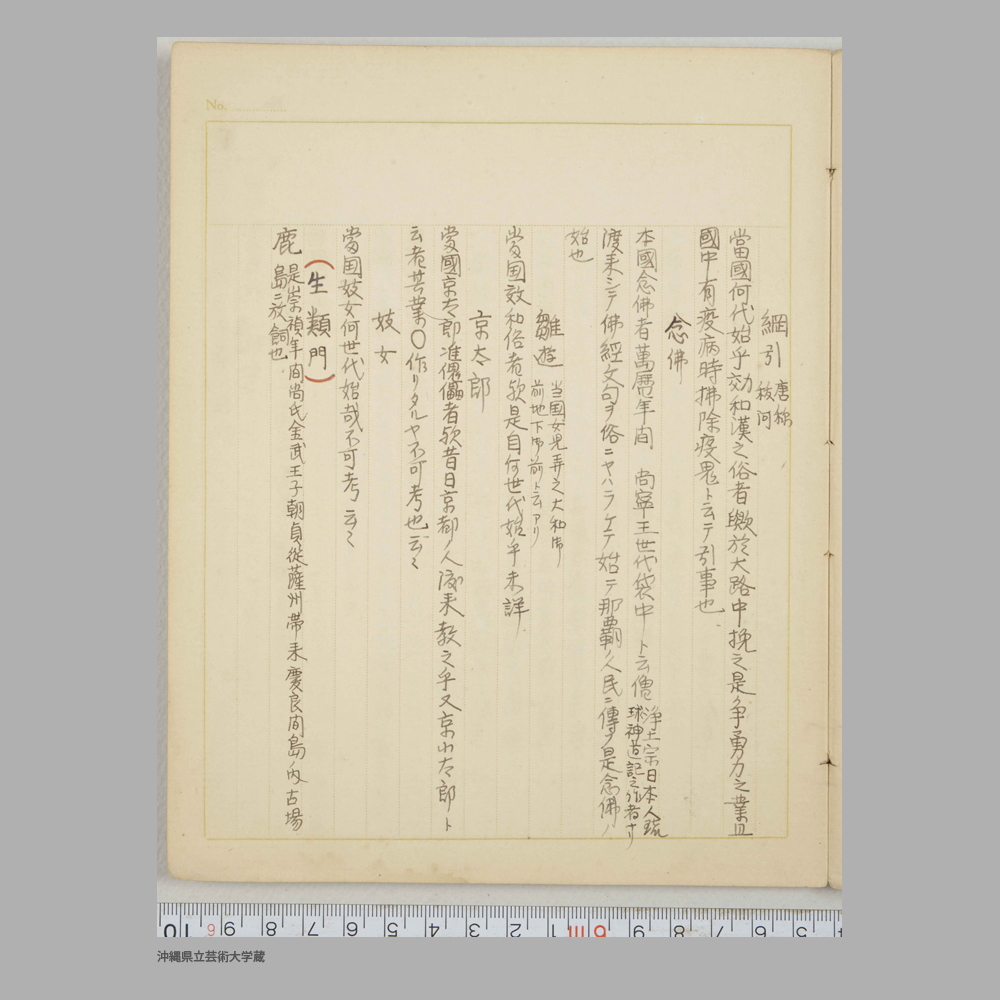 No.
綱引 唐称
 秡河
當國何代始乎効和漢之俗者歟於大路中挽之是争勇力之業且
國中有疫病時拂除疫鬼ト云テ引事也
念佛
本國念佛者萬暦年間 尚寧王世代袋中ト云僧 浄土宗日本人琉
球神道記之作者ナリ
渡来シテ佛經文句ヲ俗ニヤハラケテ始テ那覇ノ人民ニ傳フ是念佛ノ
始也
雛遊 当国女児弄之大和ニ
前地下ニ前ト云アリ
當国効和俗者歟是自何世代始乎未詳
京太郎
當國京太郎准傀儡者歟昔日京都ノ人渡来教之乎又京小太郎ト
云者其業〇作リタルヤ不可考也云々
妓女
當国妓女何世代始哉不可考云々
(生類門)
鹿 是崇禎年間尚氏金武王子朝貞従薩州帯来慶良間島ノ内古場
島ニ放飼也
10 9 8 7 6 5 4 3 2 1 6 9 8 7 6 5 4
沖縄県立芸術大学蔵